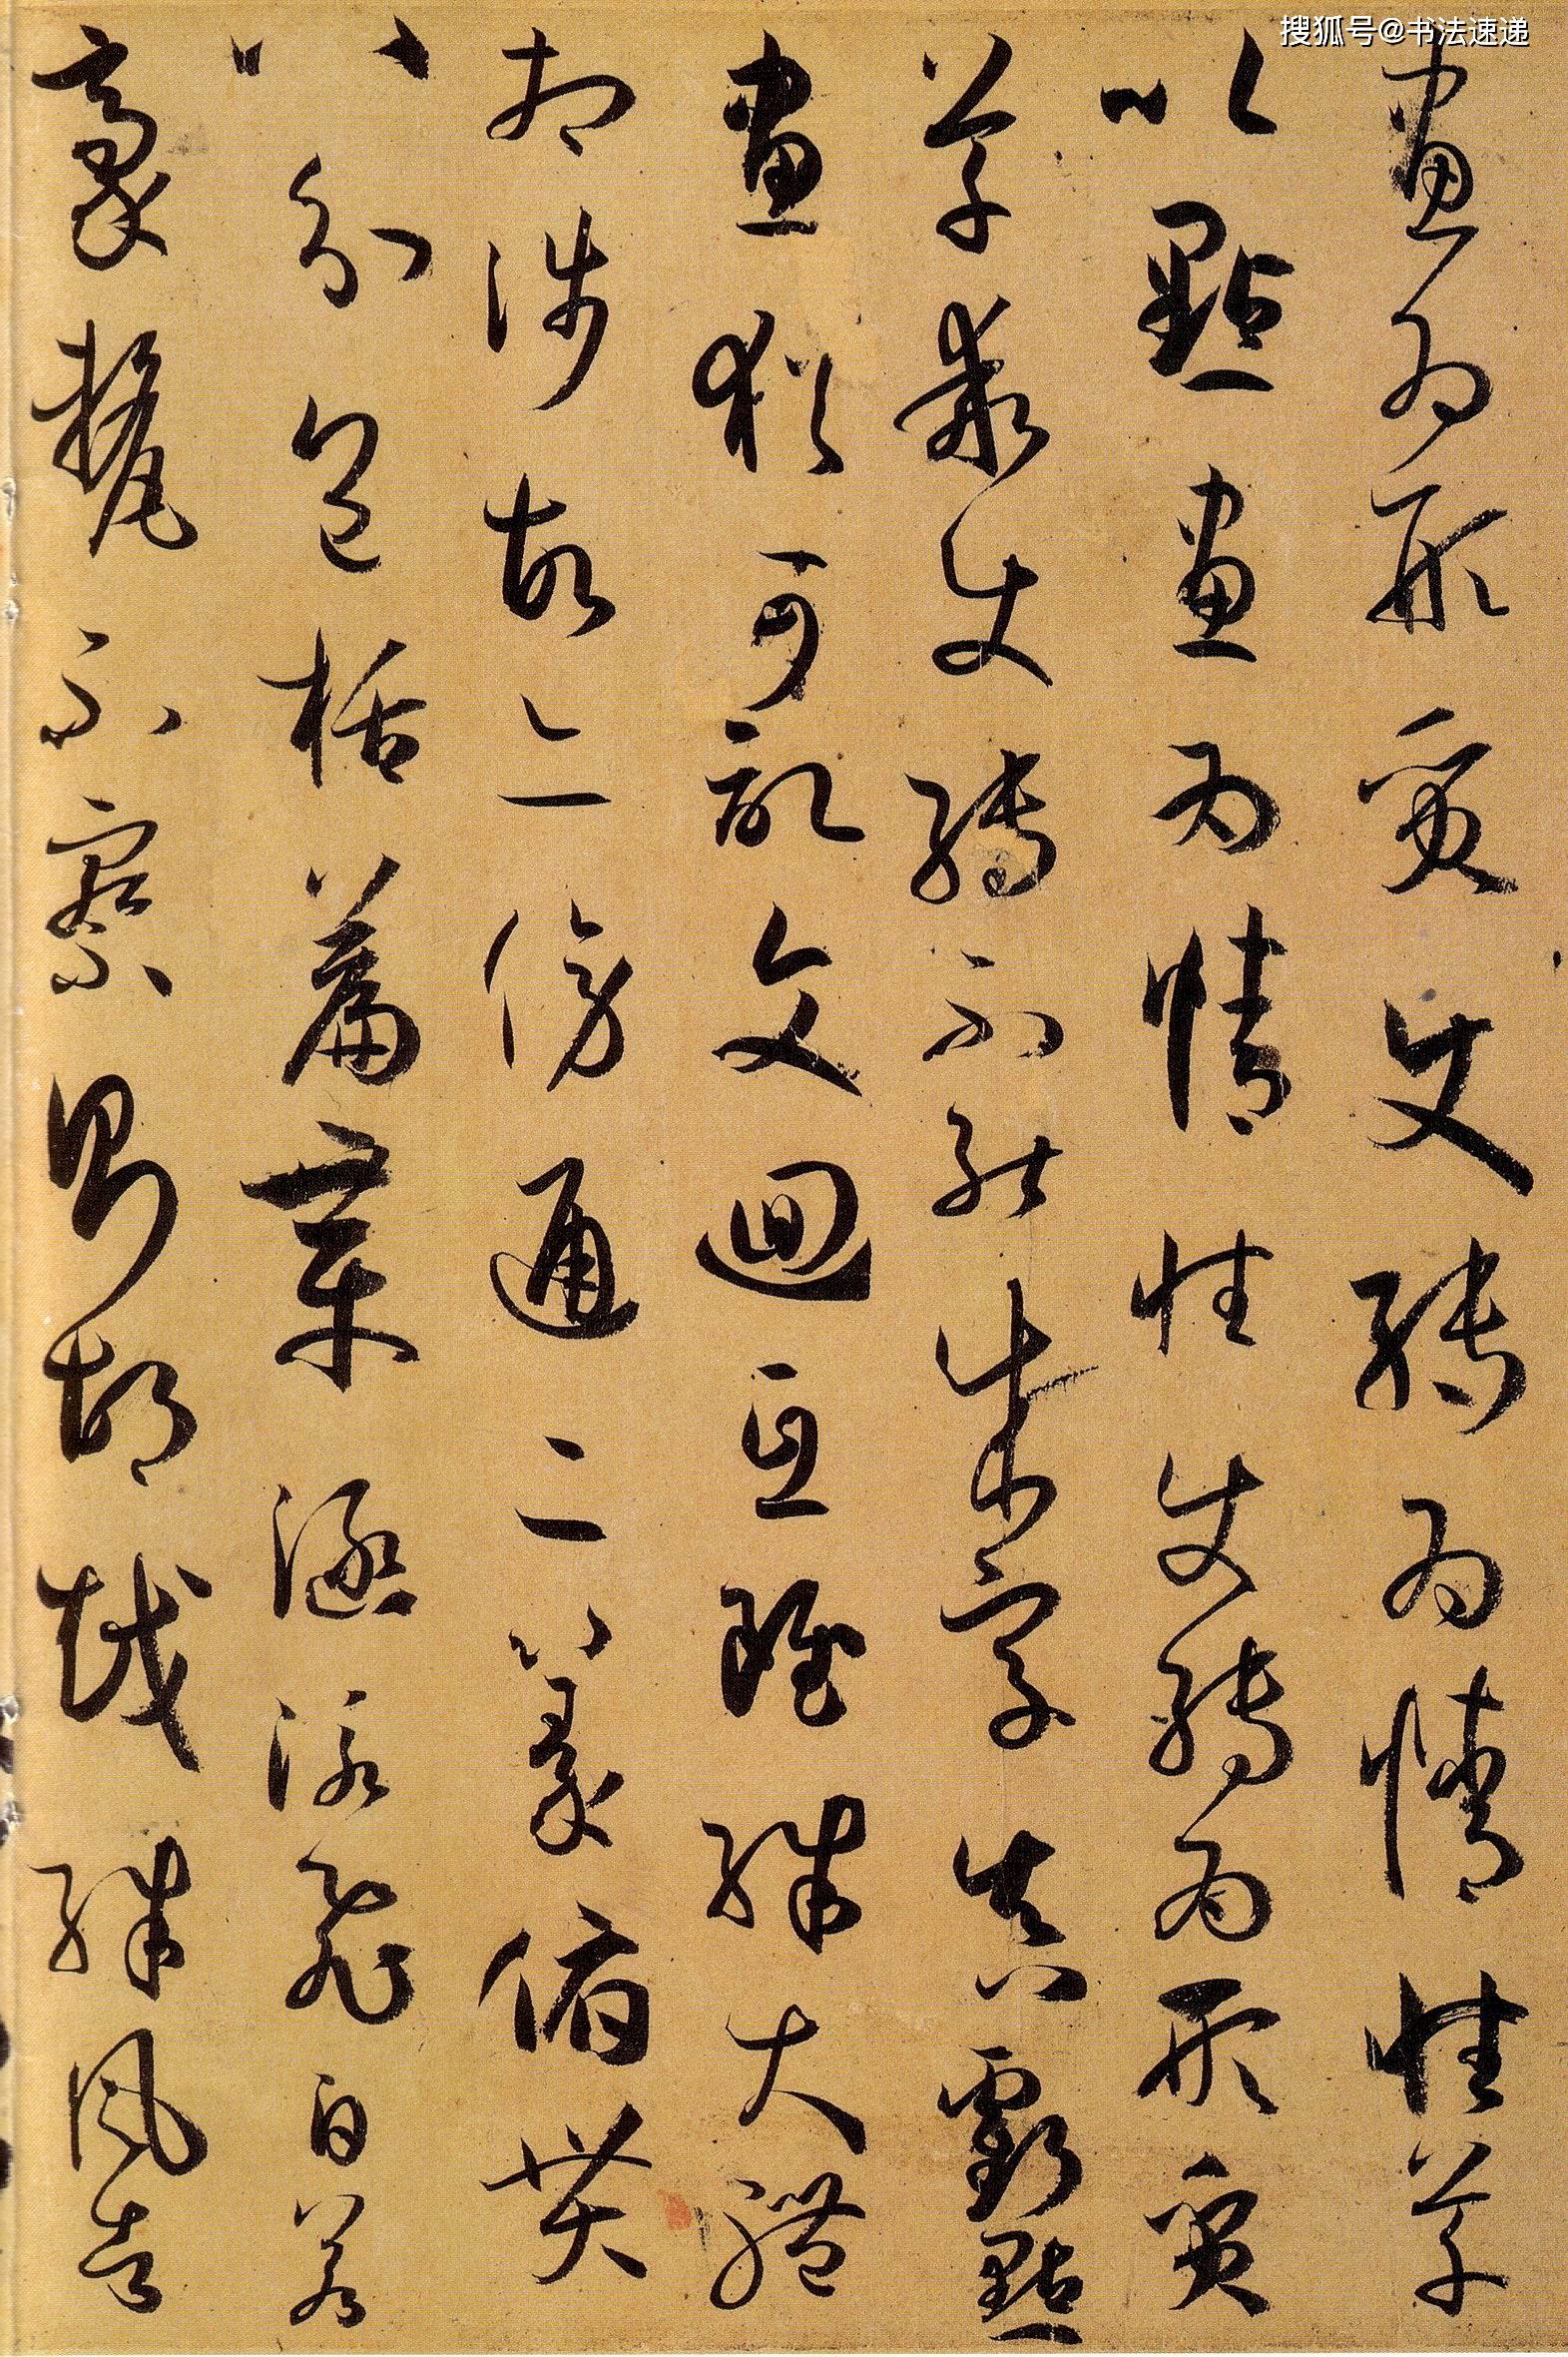 搜狐号@书法速递
畫為形質使轉為情性草
以點畫為情性使轉為形質
草乖使轉不能成字真虧點
畫猶可記文迴互雖殊大體
相涉故亦傍通二篆俯貫
八分包括篇章涵泳飛白若
豪氂不察則胡越殊風者